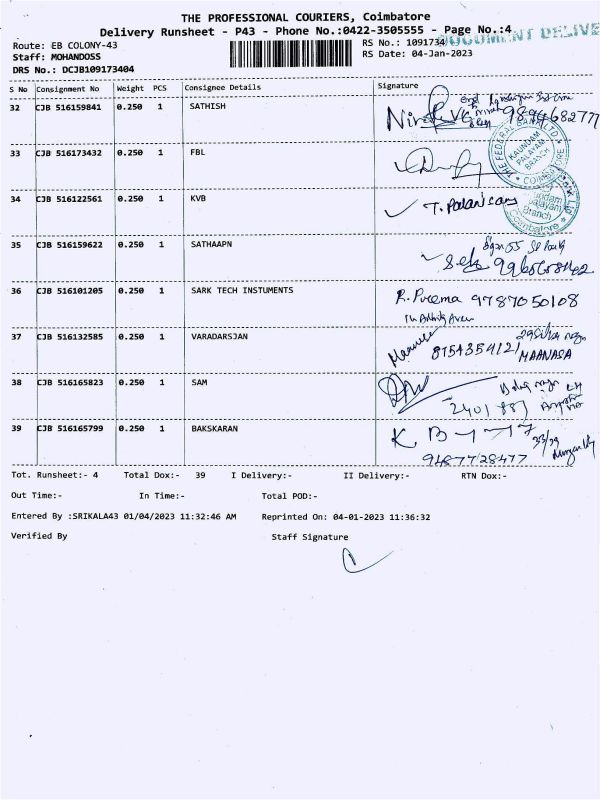 THE PROFESSIONAL COURIERS, Coimbatore
Delivery Runsheet - P43 - Phone No.:0422-3505555 - Page No.:4
DOCUMENT DELIVE
Route: EB COLONY-43
RS No.: 1091734
Staff: MOHANDOSS
RS Date: 04-Jan-2023
DRS No.: DCJB109173404
S No Consignment No Weight PCS Consignee Details Signature
32 CJB 516159841 0.250 1 SATHISH
33 CJB 516173432 0.250 1 FBL
THE FEDERAL BANK LTD
KAUNDAM PALAYAM BRANCH
34 CJB 516122561 0.250 1 KVB T. Palanisamy
Branch
Coimbatore
35 CJB 516159622 0.250 1 SATHAAPN
36 CJB 516101205 0.250 1 SARK TECH INSTUMENTS R. Preema 9787050108
37 CJB 516132585 0.250 1 VARADARSJAN 8754354121 MAANASA
38 CJB 516165823 0.250 1 SAM 2401 887
39 CJB 516165799 0.250 1 BAKSKARAN 33/29
9487728477
Tot. Runsheet:- 4 Total Dox:- 39 I Delivery:- II Delivery:- RTN Dox:-
Out Time:- In Time:- Total POD:-
Entered By :SRIKALA43 01/04/2023 11:32:46 AM Reprinted On: 04-01-2023 11:36:32
Verified By Staff Signature